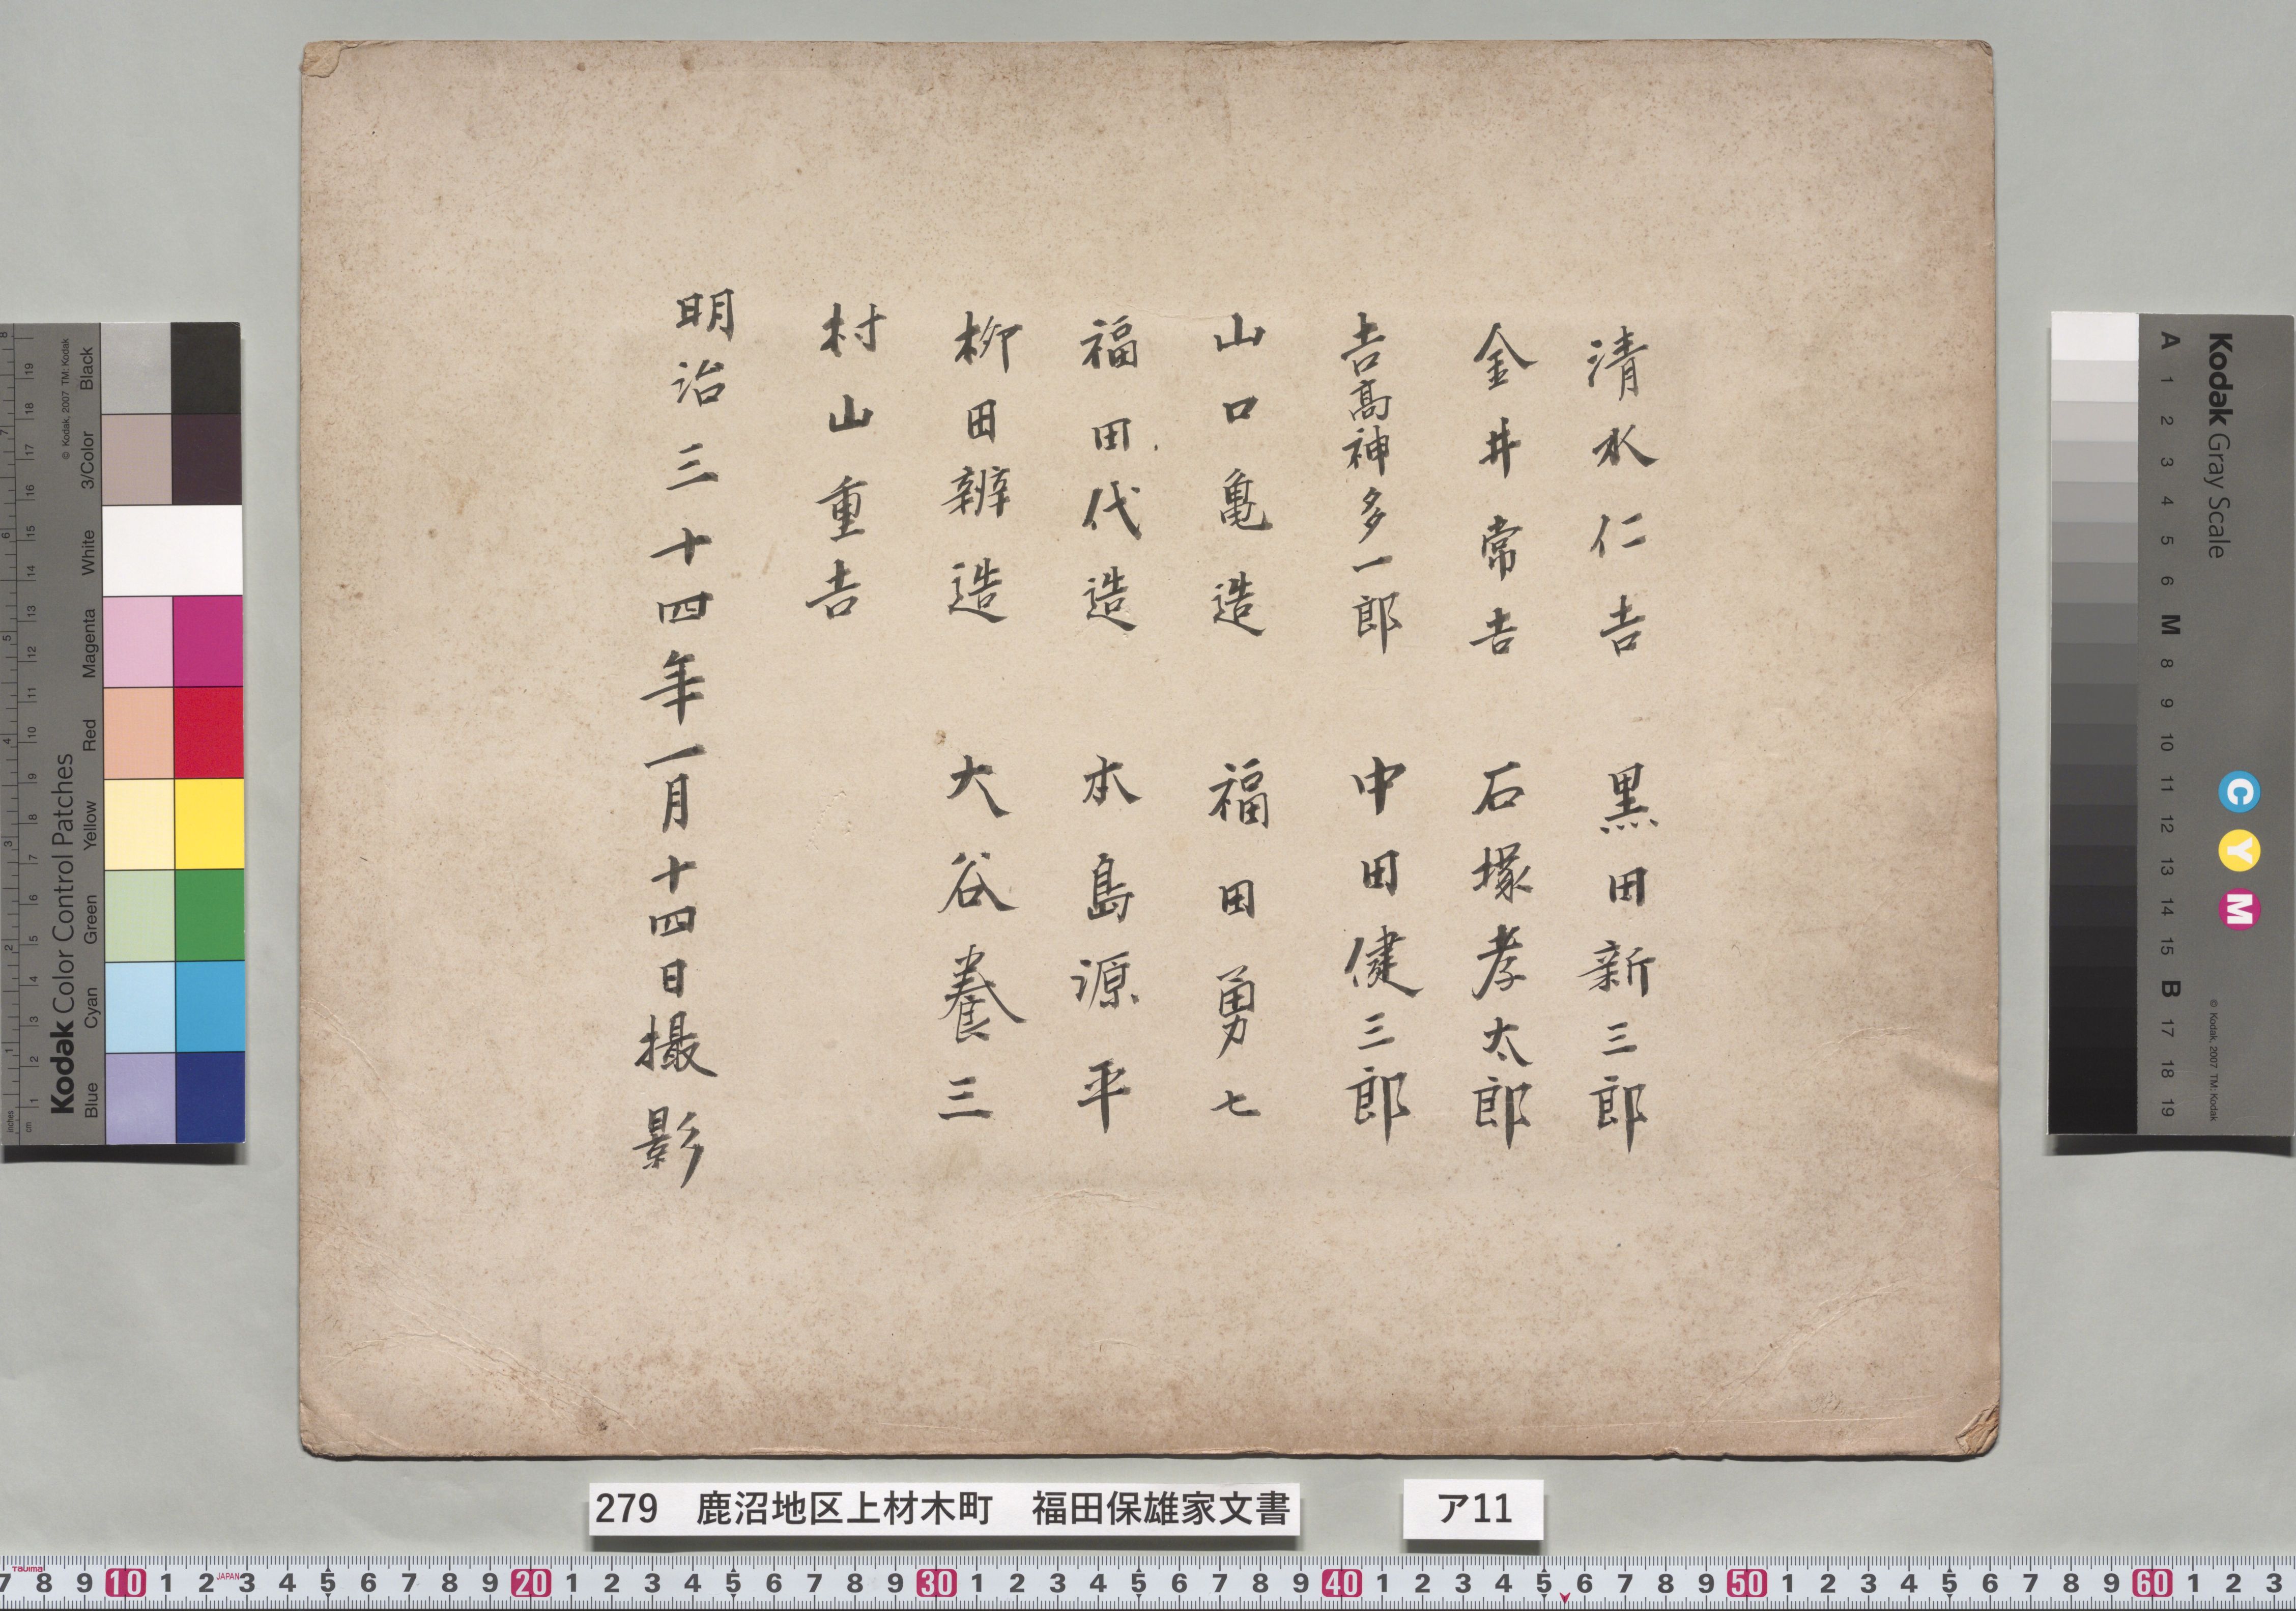 清水仁𠮷　黒田新三郎
金井常𠮷　石塚孝太郎
𠮷髙神多一郎　中田健三郎
山口亀造　福田勇七
福田代造　本島源平
柳田辨造　大谷養三
村山重𠮷
明治三十四年一月十四日撮影
279　鹿沼地区上材木町　福田保雄家文書
ア11
Kodak Color Control Patches
© Kodak, 2007 TM: Kodak
Blue Cyan Green Yellow Red Magenta White 3/Color Black
inches 1 2 3 4 5 6 7 8
cm 1 2 3 4 5 6 7 8 9 10 11 12 13 14 15 16 17 18 19
Kodak Gray Scale
C Y M
© Kodak, 2007 TM: Kodak
A 1 2 3 4 5 6 M 8 9 10 11 12 13 14 15 B 17 18 19
Tajima
JAPAN
7 8 9 10 1 2 3 4 5 6 7 8 9 20 1 2 3 4 5 6 7 8 9 30 1 2 3 4 5 6 7 8 9 40 1 2 3 4 5 6 7 8 9 50 1 2 3 4 5 6 7 8 9 60 1 2 3